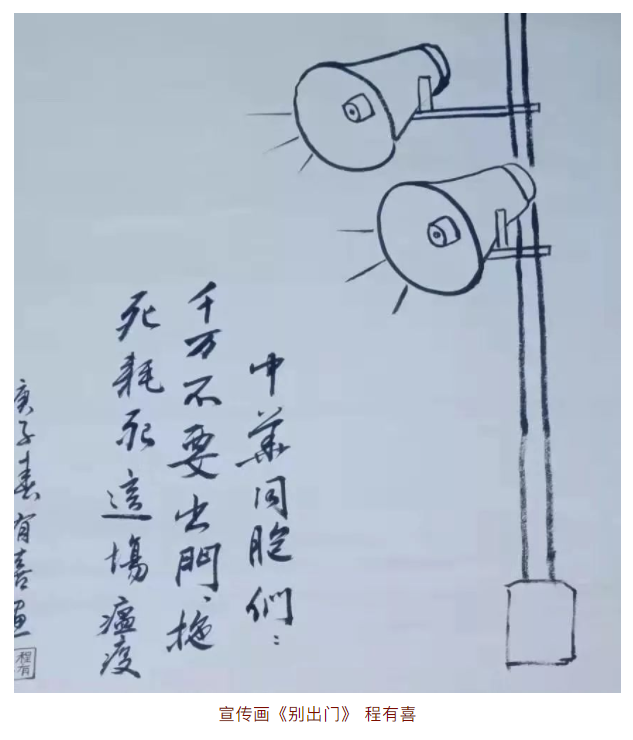 中華同胞們：
千万不要出門、拖
死耗死這場瘟疫
庚子春有喜画
程有
宣传画《别出门》 程有喜